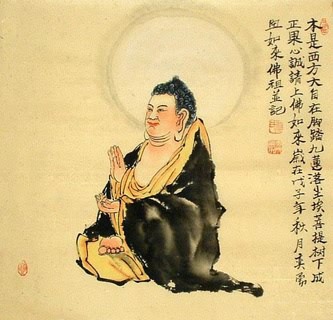 本是西方大自在脚踏九蓮落尘埃菩提树下成
正果心誠請上佛如来歲在戊子年秋月
如來佛祖並記